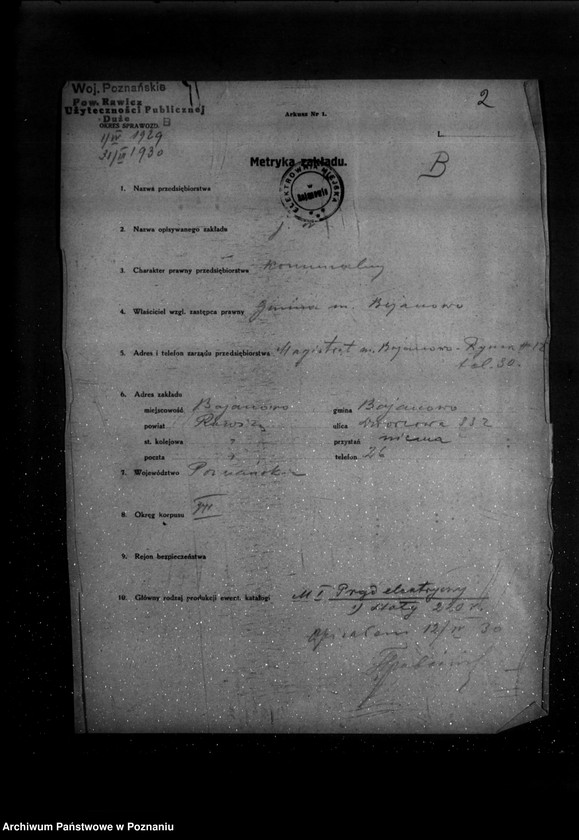 Woj. Poznańskie
Pow. Rawicz
Użyteczności Publicznej
Duże
OKRES SPRAWOZD.
1/IV 1929
31/III 1930
Arkusz Nr 1.
2
B
Metryka zakładu.
ELEKTROWNIA MIEJSKA
w
Bojanowie
1. Nazwa przedsiębiorstwa
2. Nazwa opisywanego zakładu
3. Charakter prawny przedsiębiorstwa komunalny
4. Właściciel wzgl. zastępca prawny Gmina m. Bojanowo
5. Adres i telefon zarządu przedsiębiorstwa Magistrat m. Bojanowo - Rynek # 12
tel. 30.
6. Adres zakładu
miejscowość Bojanowo gmina Bojanowo
powiat Rawicz ulica Dworcowa 332
st. kolejowa " przystań niema
poczta " telefon 26
7. Województwo Poznańskie
8. Okręg korpusu VII
9. Rejon bezpieczeństwa
10. Główny rodzaj produkcji ewent. katalogi M I Prąd elektryczny
1) stały 220 v.
Opisałem 12/IV 30
Archiwum Państwowe w Poznaniu